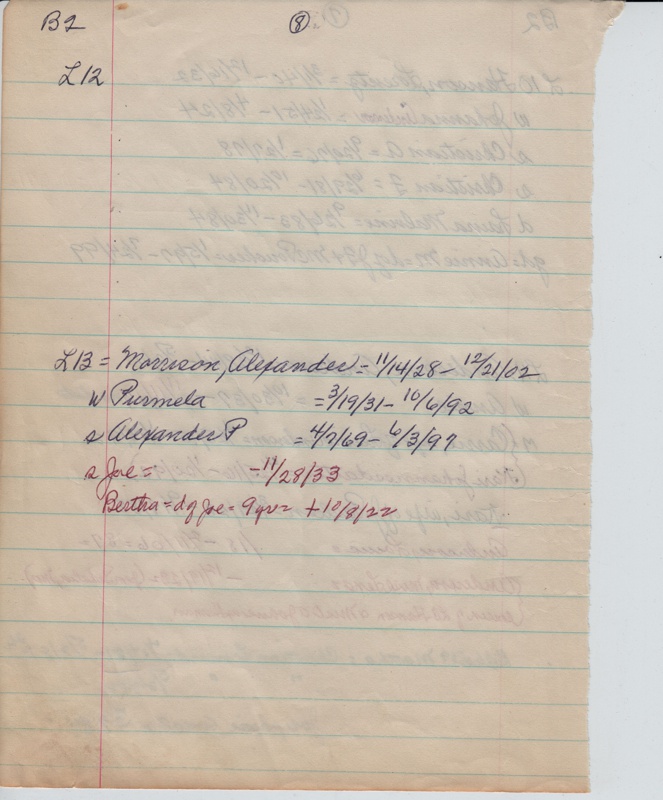 B2 8
L12
L13 = Morrison, Alexander = 11/14/28 - 12/21/02
w Purmela = 3/19/31 - 10/6/92
s Alexander P = 4/7/69 - 6/3/97
s Joe = - 11/28/33
Bertha = d of Joe = 9 yrs + 10/8/22